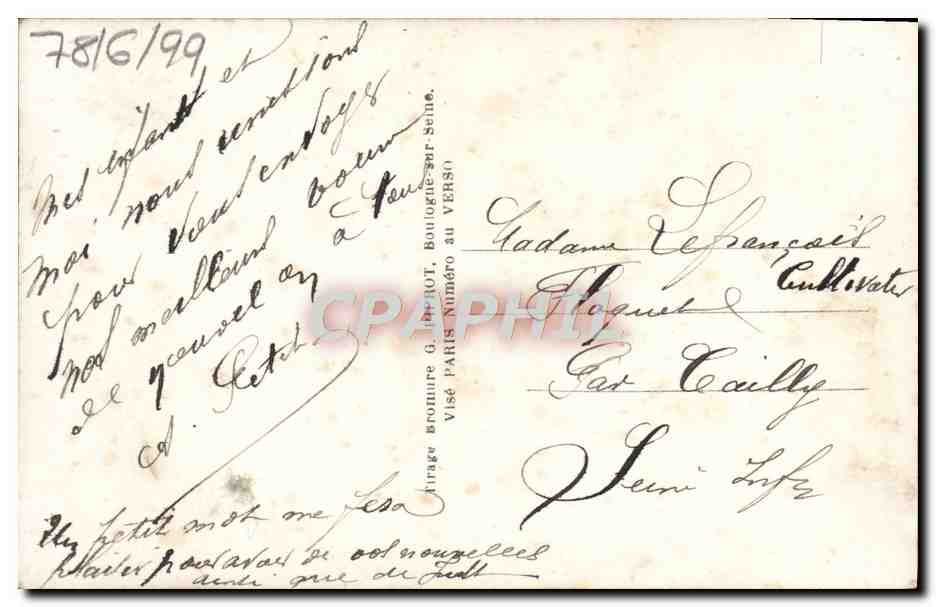 78/6/99
Mes enfants et
moi nous unissons
pour vous envoyer
nos meilleurs voeux
de nouvel an à tous
A. Petit
Un petit mot me fera
plaisir pour avoir de vos nouvelles
ainsi que de
Tirage Bromure G. PIPROT, Boulogne-sur-Seine.
Visé PARIS Numéro au VERSO
CPAPHIL
Madame Lefrançois
Cultivater
Floquet
Par Cailly
Seine Infre